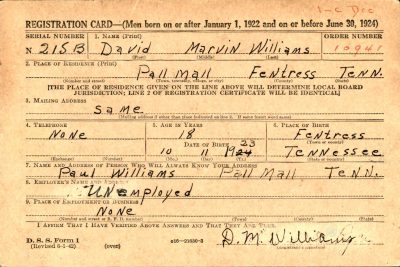 1-C Dec
REGISTRATION CARD—(Men born on or after January 1, 1922 and on or before June 30, 1924)
SERIAL NUMBER 1. NAME (Print) ORDER NUMBER
N 215B David Marvin Williams 10941
(First) (Middle) (Last)
2. PLACE OF RESIDENCE (Print)
Pall Mall Fentress Tenn.
(Number and street) (Town, township, village, or city) (County) (State)
[THE PLACE OF RESIDENCE GIVEN ON THE LINE ABOVE WILL DETERMINE LOCAL BOARD
JURISDICTION; LINE 2 OF REGISTRATION CERTIFICATE WILL BE IDENTICAL]
3. MAILING ADDRESS
Same
[Mailing address if other than place indicated on line 2. If same insert word same]
4. TELEPHONE 5. AGE IN YEARS 6. PLACE OF BIRTH
None 18 Fentress
DATE OF BIRTH (Town or county)
10 11 1924 23 Tennessee
(Exchange) (Number) (Mo.) (Day) (Yr.) (State or country)
7. NAME AND ADDRESS OF PERSON WHO WILL ALWAYS KNOW YOUR ADDRESS
Paul Williams Pall Mall Tenn.
8. EMPLOYER'S NAME AND ADDRESS
Unemployed
9. PLACE OF EMPLOYMENT OR BUSINESS
None
(Number and street or R. F. D. number) (Town) (County) (State)
I AFFIRM THAT I HAVE VERIFIED ABOVE ANSWERS AND THAT THEY ARE TRUE.
D. S. S. Form 1
(Revised 6-1-42) (over) D. M. Williams
(Registrant's signature)